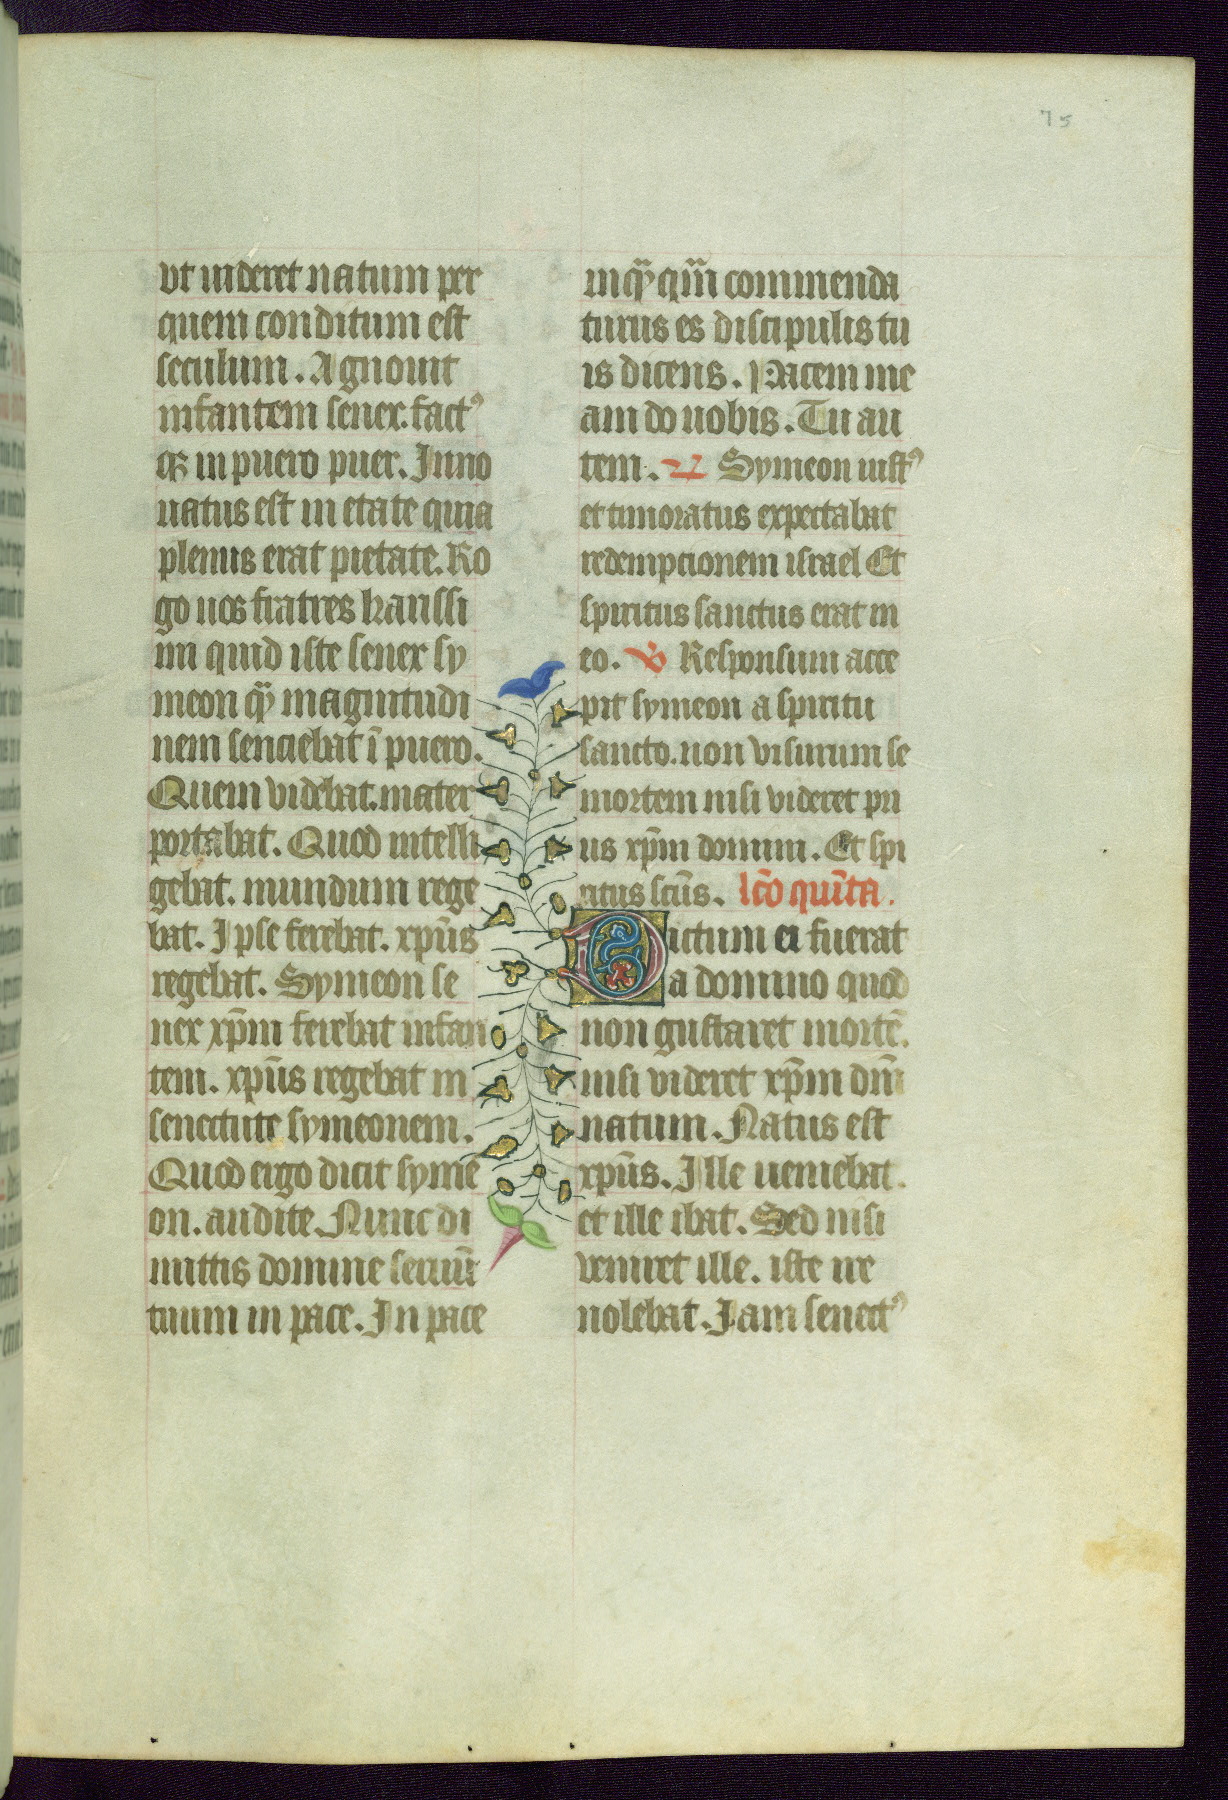 75
vt uideret natum per
quem conditum est
seculum. Agnouit
infantem senex. fact⁹
q3 in puero puer. Inno
uatus est in etate quia
plenus erat pietate. Ro
go uos fratres karissi
mi quid iste senex sy
meon qr̄ magnitudi
nem senciebat ī puero.
Quem videbat. mater
portabat. Quod intelli
gebat. mundum rege
bat. Ipse ferebat. xpūs
regebat. Symeon se
nex xp̄m ferebat infan
tem. xpūs regebat in
senectute symeonem.
Quod ergo dicit syme
on. audite. Nunc di
mittis domine seruū
tuum in pace. In pace
inqr̄ qm̄ commenda
turus es discipulis tu
is dicens. Pacem me
am do uobis. Tu au
tem. R Symeon iust⁹
et timoratus expectabat
redempcionem israel Et
spiritus sanctus erat in
eo. V Responsum acce
pit symeon a spiritu
sancto. non visurum se
mortem nisi videret pri
us xp̄m domini. Et spi
ritus scūs. lc̄o quīta.
Dictum ei fuerat
a domino quod
non gustaret mortē.
nisi videret xp̄m dn̄i
natum. Natus est
xpūs. Ille ueniebat.
et ille ibat. Sed nisi
veniret ille. iste ire
nolebat. Iam senect⁹